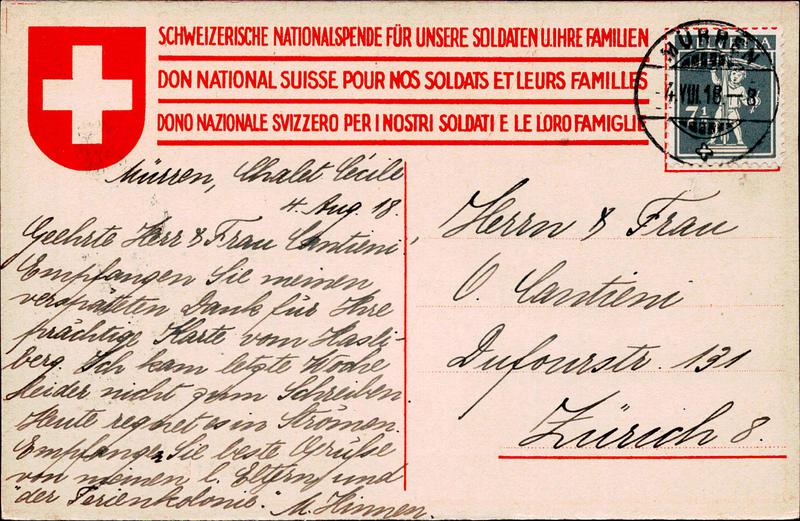 SCHWEIZERISCHE NATIONALSPENDE FÜR UNSERE SOLDATEN U. IHRE FAMILIEN
DON NATIONAL SUISSE POUR NOS SOLDATS ET LEURS FAMILLES
DONO NAZIONALE SVIZZERO PER I NOSTRI SOLDATI E LE LORO FAMIGLIE
MÜRREN
4.VIII.18.–8
7½
Mürren, Chalet Cécile
4. Aug. 18.
Geehrte Herr & Frau Cantieni!
Empfangen Sie meinen
verspäteten Dank für Ihre
prächtige Karte vom Hasli-
berg. Ich kam letzte Woche
leider nicht zum Schreiben
Heute regnet es in Strömen.
Empfangen Sie beste Grüsse
von meinen l. Eltern und
"der Ferienkolonie." M. Hinnen.
Herrn & Frau
O. Cantieni
Dufourstr. 131
Zürich 8.